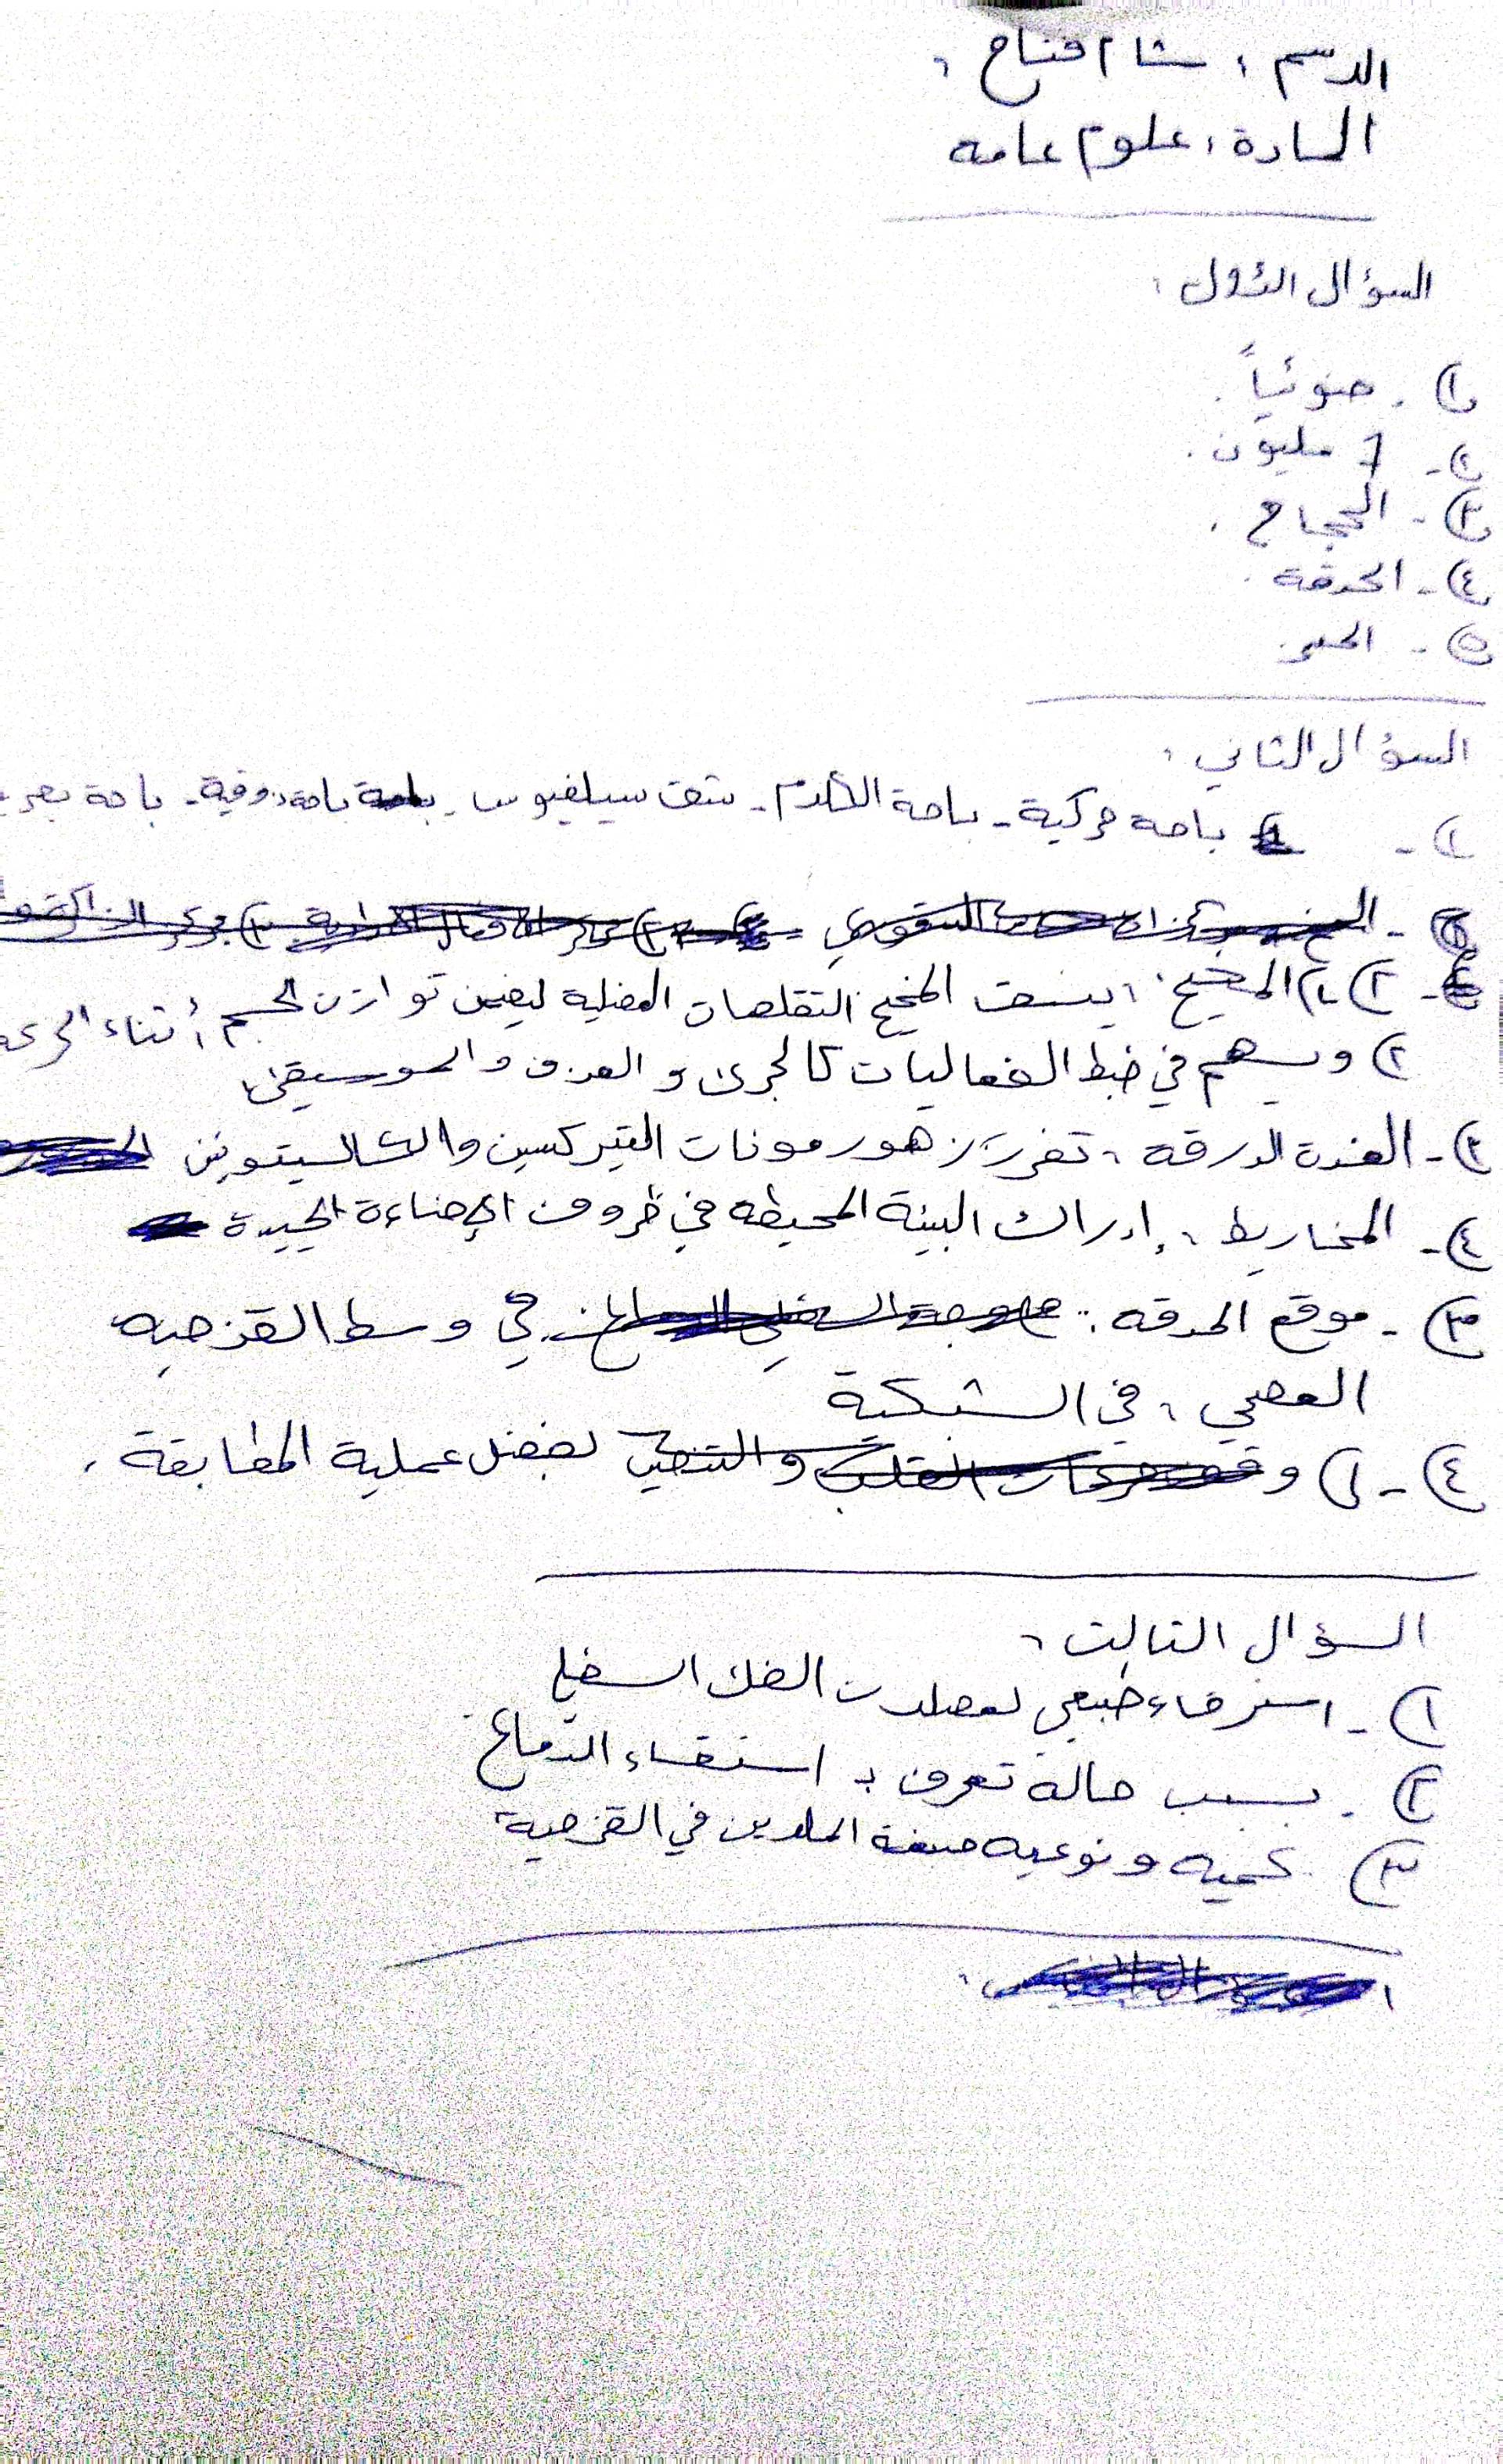 الاسم : شام فتاح :
المادة : علوم عامه
السؤال الأول :
١) . ضوئياً .
٢) - 7 مليون .
٣) - الحجاج .
٤) - الحدقة .
٥) -
السؤال الثاني :
١) - باحة حركية - باحة الكلام - شق سيلفيوس - باحة ذوقية - باحة
٢) المخيخ : ينسق المخيخ التقلصات العضلية ليضمن توازن الجسم أثناء
٢) ويسهم في ضبط الفعاليات كالجري و العزف و الموسيقى
٣) - الغدة الدرقة : تفرز هورمونات التيركسين والكالسيتونين
٤) - المخاريط : إدراك البيئة المحيطه في ظروف الإضاءة الجيدة
٣) - موقع الحدقه : في وسط القزحيه
العصبي : في الشبكية
٤) - ١) و لفضل عملية المطابقة .
السؤال الثالث :
١) - استرخاء طبيعي لعضلات الفك السفلي
٢) - بسبب حالة تعرف بـ استسقاء الدماغ
٣) كميه و نوعيه صبغة الملانين في القزحية